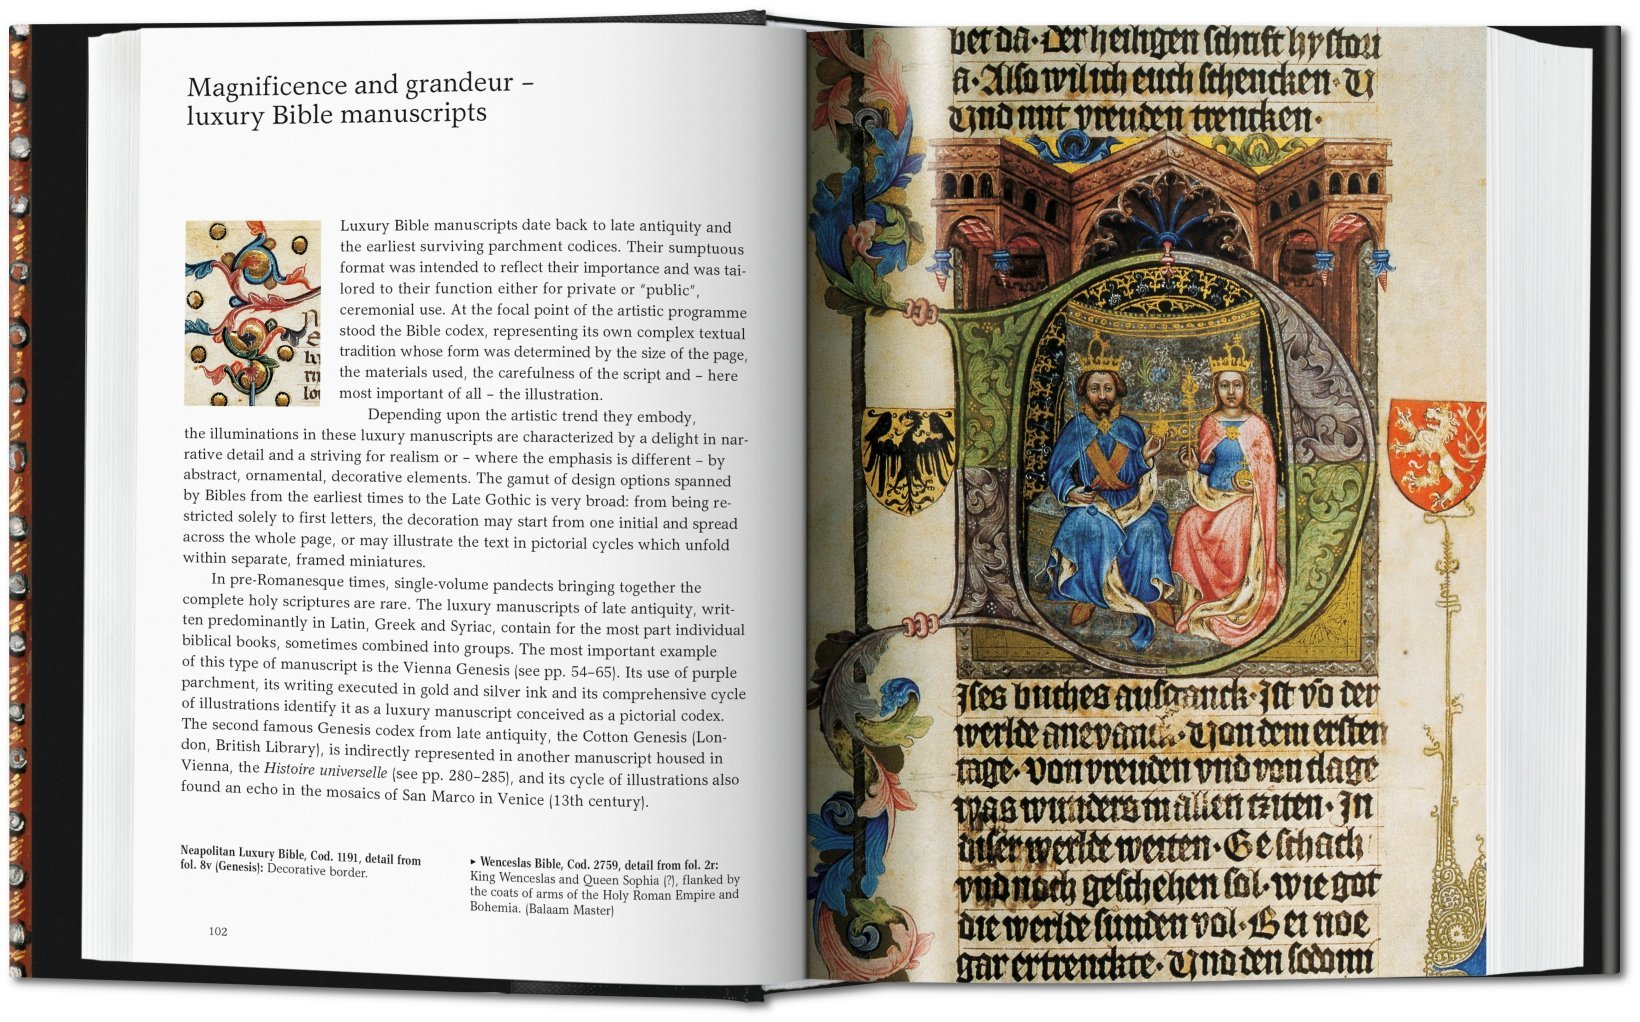 Magnificence and grandeur –
luxury Bible manuscripts
Luxury Bible manuscripts date back to late antiquity and
the earliest surviving parchment codices. Their sumptuous
format was intended to reflect their importance and was tai-
lored to their function either for private or “public”,
ceremonial use. At the focal point of the artistic programme
stood the Bible codex, representing its own complex textual
tradition whose form was determined by the size of the page,
the materials used, the carefulness of the script and – here
most important of all – the illustration.
Depending upon the artistic trend they embody,
the illuminations in these luxury manuscripts are characterized by a delight in nar-
rative detail and a striving for realism or – where the emphasis is different – by
abstract, ornamental, decorative elements. The gamut of design options spanned
by Bibles from the earliest times to the Late Gothic is very broad: from being re-
stricted solely to first letters, the decoration may start from one initial and spread
across the whole page, or may illustrate the text in pictorial cycles which unfold
within separate, framed miniatures.
In pre-Romanesque times, single-volume pandects bringing together the
complete holy scriptures are rare. The luxury manuscripts of late antiquity, writ-
ten predominantly in Latin, Greek and Syriac, contain for the most part individual
biblical books, sometimes combined into groups. The most important example
of this type of manuscript is the Vienna Genesis (see pp. 54–65). Its use of purple
parchment, its writing executed in gold and silver ink and its comprehensive cycle
of illustrations identify it as a luxury manuscript conceived as a pictorial codex.
The second famous Genesis codex from late antiquity, the Cotton Genesis (Lon-
don, British Library), is indirectly represented in another manuscript housed in
Vienna, the Histoire universelle (see pp. 280–285), and its cycle of illustrations also
found an echo in the mosaics of San Marco in Venice (13th century).
Neapolitan Luxury Bible, Cod. 1191, detail from
fol. 8v (Genesis): Decorative border.
▸ Wenceslas Bible, Cod. 2759, detail from fol. 2r:
King Wenceslas and Queen Sophia (?), flanked by
the coats of arms of the Holy Roman Empire and
Bohemia. (Balaam Master)
102
bet da · der heiligen schrift hystori
a · Also wil ich euch schencken · U
Und mit vreuden trencken ·
D
ises buches ausganck · Ist vo der
werlde anevanck · Von dem ersten
tage · von vreuden vnd von clage
was wunders in allen cziten · In
diser werlde weiten · Geschach
vnd noch geschehen sol · wie got
die werlde sunden vol · Bei noe
gar ertrenckte · Und den sodom